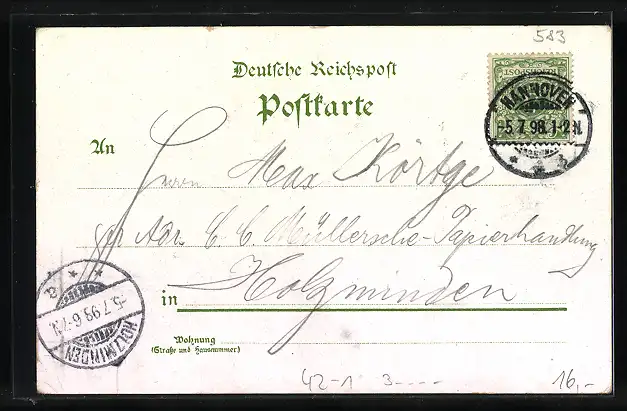 583
Deutsche Reichspost
Postkarte
REICHSPOST
HANNOVER
5.7.98.1-2N.
An
Herrn Max Körtge
per Adr. C. C. Müllersche-Papierhandlung
in Holzminden
HOLZMINDEN
5.7.98.6-7N.
Wohnung
(Straße und Hausnummer)
42-1 3----
16,-